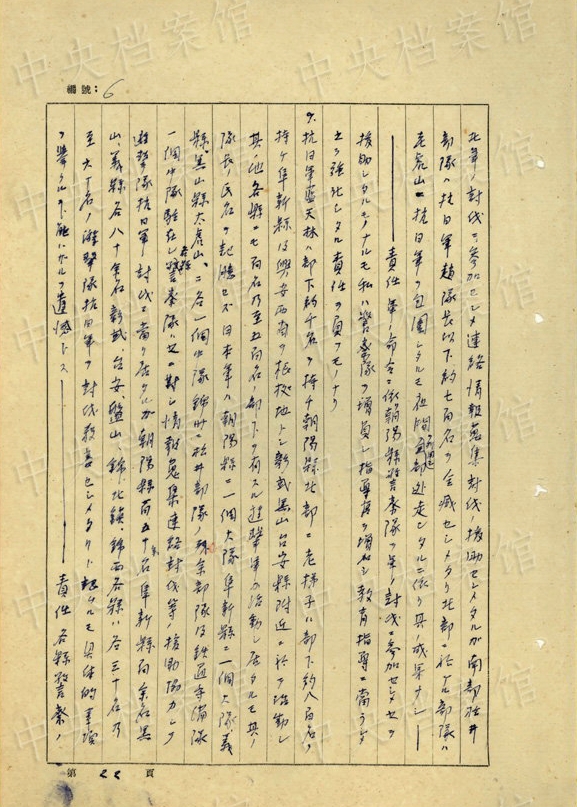 編號：6
北軍ノ討伐ニ参加セシメ連絡情報蒐集討伐ノ援助セシメタルガ南部駐屯
部隊ハ抗日軍趙隊長以下約七百名ヲ全滅セシメタリ北部ニ於ケル部隊ハ
老虎山ニ抗日軍ヲ包囲シタルモ逃走シタルニ依リ其ノ成果ナシ——
——責任軍ノ命令ニ依リ朝陽縣警察隊ヲ軍ノ討伐ニ参加セシメ
援助シタルモノナルモ私ハ警察隊ヲ増員シ指導官ヲ増加シ教育指導ニ当ラシメ
強化シタル責任ヲ負フモノナリ
9.抗日軍藍天林ハ部下約千名ヲ持チ朝陽縣北部ニ老梯子ハ部下約八百名ヲ
持ケ阜新縣及興安西南ヲ根拠地トシ彰武黒山台安縣附近ニ於テ活動シ
其ノ他各縣ニモ百名乃至五百名ノ部下ヲ有スル遊撃軍ガ活動シ居タルモ其ノ
隊長ノ氏名ヲ記憶セズ日本軍ハ朝陽縣ニ一個大隊阜新縣ニ一個大隊義
縣黒山縣大虎山ニ各一個中隊錦州ニ松井部隊ノ残余部隊及鉄道守備隊
一個中隊駐在シ各縣警察隊ハ之ニ対シ情報蒐集連絡討伐等ノ援助協力シツツ
遊撃隊抗日軍討伐ニ当リ居タルガ朝陽縣百五十名阜新縣百余名黒
山、義縣各八十余名彰武、台安、盤山、錦北鎮、錦西各縣ハ各三十名乃
至六十名ノ遊撃隊抗日軍ヲ討伐殺害セシメタリト記憶スルモ具体的事実
ヲ挙クル事能ハザルヲ遺憾トス————責任各縣警察ノ
第 22 頁
中央档案馆